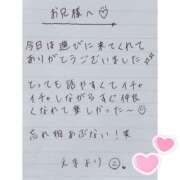 お兄様へ♡
今日は遊びに来てくれて
ありがとうございました
とっても話やすくてイチャ
イチャしながらすぐ仲良
くなれて楽しかった〜
忘れ物あぶない!笑
えまより